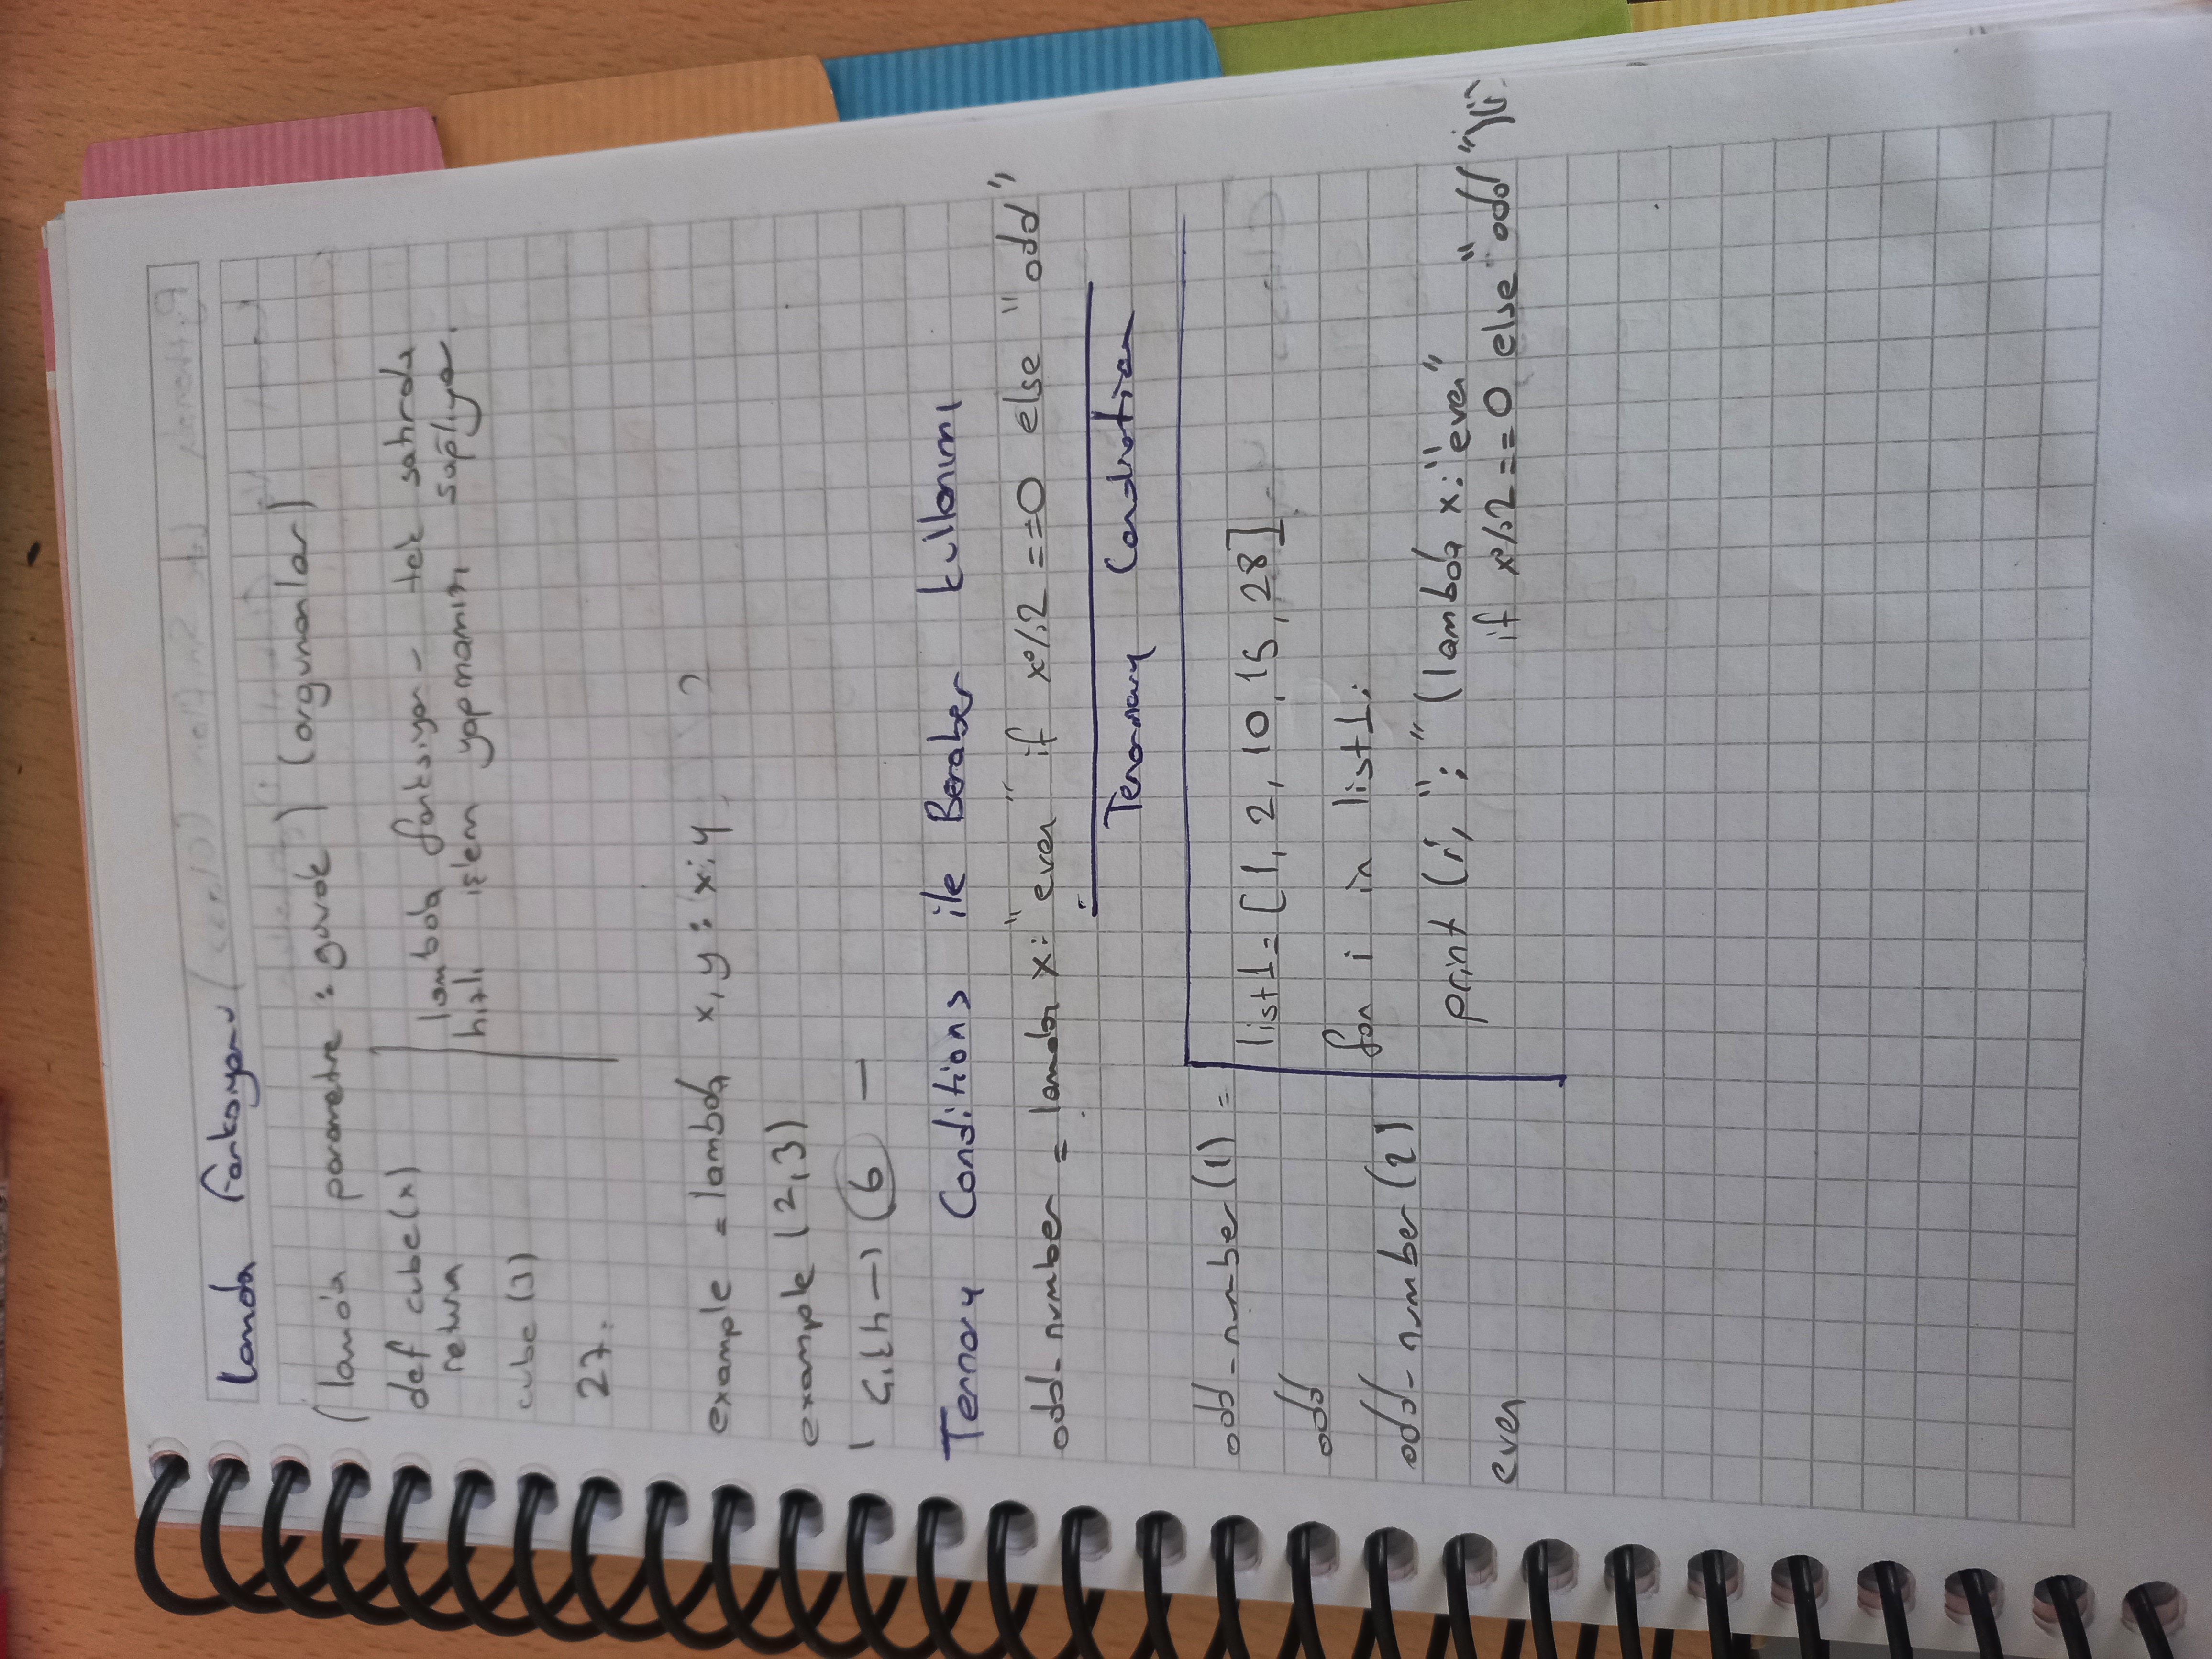 Lamda Fonksiyonu
(lamda parametre : gövde) (argumanlar)
def cube(x)
return
cube (3)
27.
lambda fonksiyon - tek satırda
hızlı işlem yapmamızı sağlıyor.
example = lambda x, y : x:y
example (2,3)
(6) —
Ternary Conditions ile Beraber kullanımı
odd-number = lamda x: "even" if x%2 ==0 else "odd"
odd-number (1) =
odd
odd-number (2)
even
list1 = [1, 2, 10, 15, 28]
for i in list1:
print (i, ":" (lambda x: "even"
if x%2 == 0 else "odd")(i)